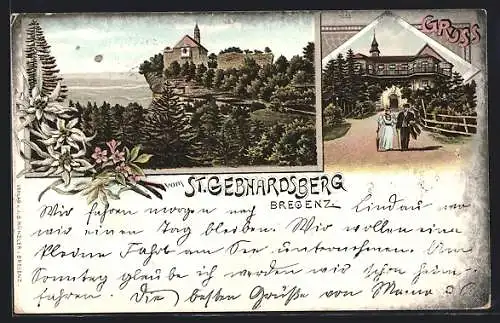 GRUSS
VOM
ST. GEBHARDSBERG
BREGENZ
Wir fahren morgen nach Lindau wo
wir einen Tag bleiben. Wir wollen eine
kleine Fahrt am See unternehmen. Am
Sonntag glaube ich werden wir schon heim-
fahren. Die besten Grüße von Mama